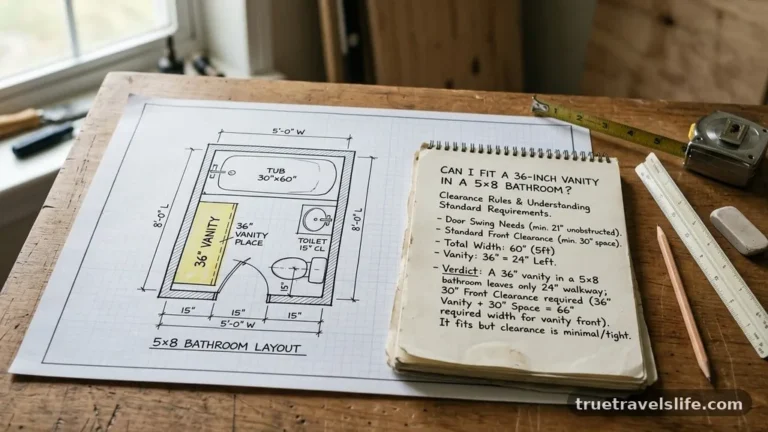 5'-0" W
TUB
30"x60"
8'-0" L
8'-0" L
36" VANITY
36"
VANITY
PLACE
TOILET
15" CL
15"
15"
15"
5'-0" W
5x8 BATHROOM LAYOUT
CAN I FIT A 36-INCH VANITY
IN A 5x8 BATHROOM?
Clearance Rules & Understanding
Standard Requirements.
- Door Swing Needs (min. 21" unobstructed).
- Standard Front Clearance (min. 30" space).
- Total Width: 60" (5ft)
- Vanity: 36" = 24" Left.
- Verdict: A 36" vanity in a 5x8
bathroom leaves only 24" walkway;
30" Front Clearance required (36"
Vanity + 30" Space = 66"
required width for vanity front).
It fits but clearance is minimal/tight.
truetravelslife.com